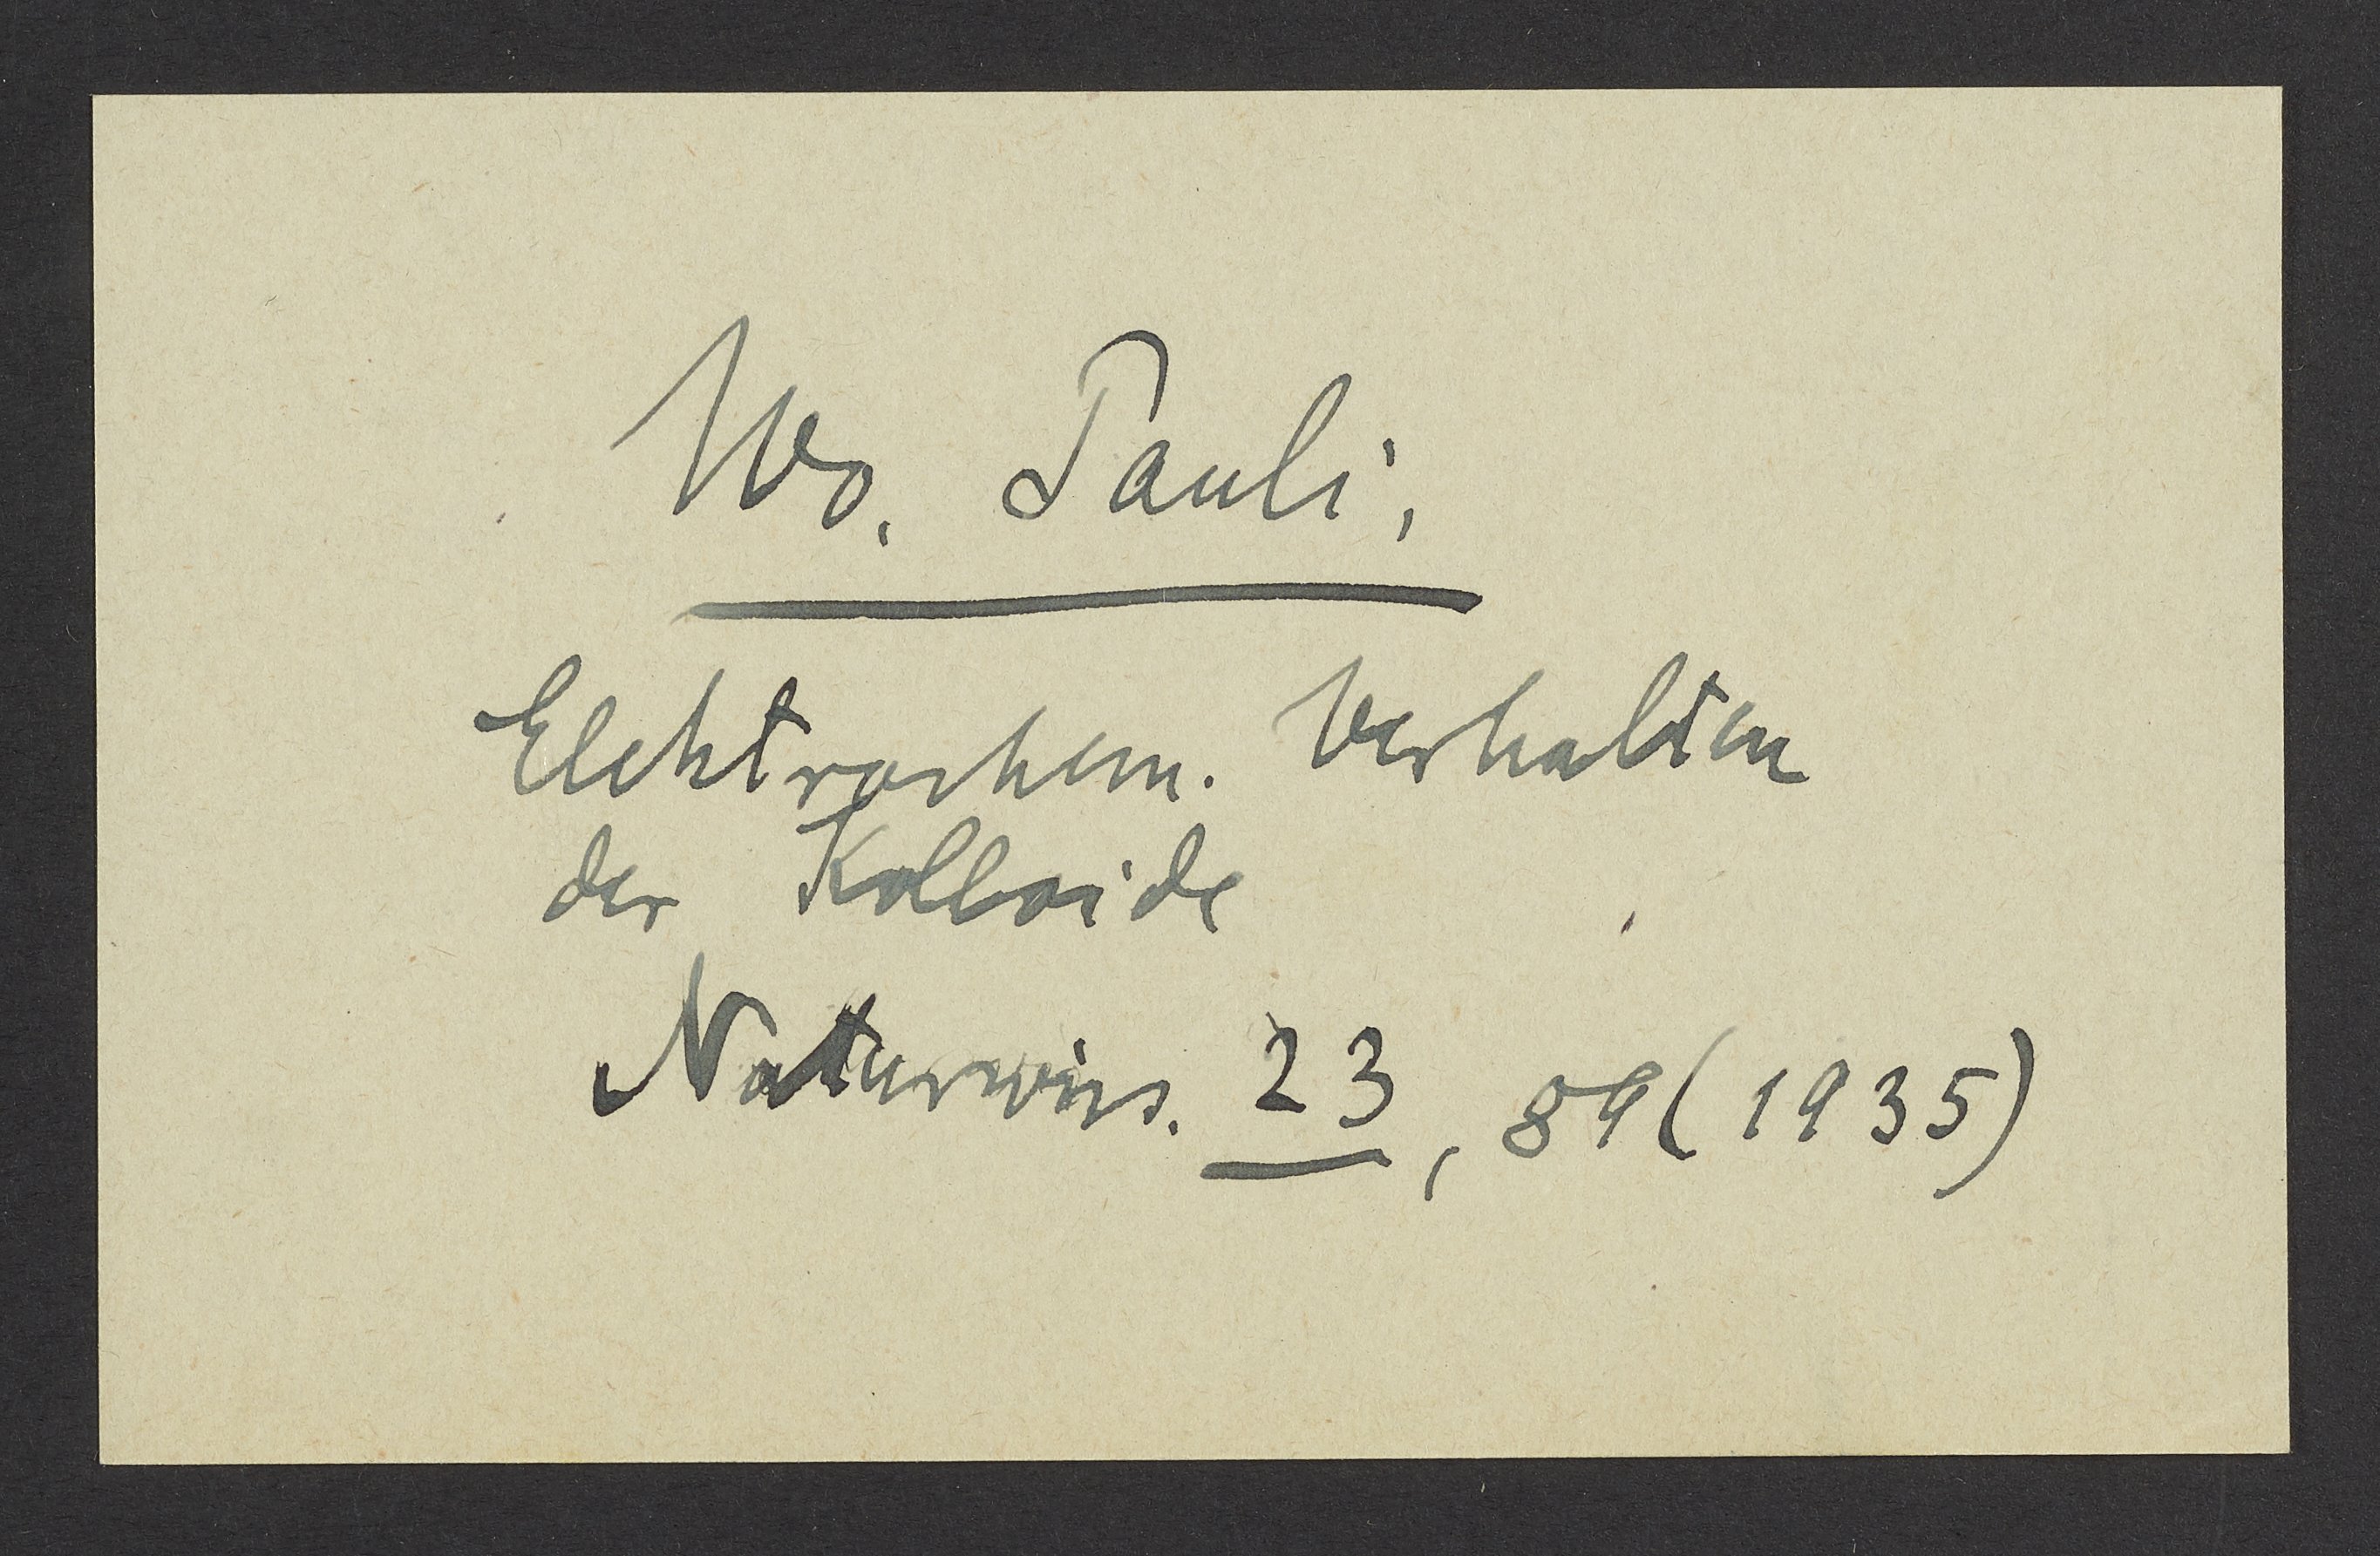 Wo. Pauli,
Elektrochem. Verhalten
der Kolloide
Naturwiss. 23, 89 (1935)